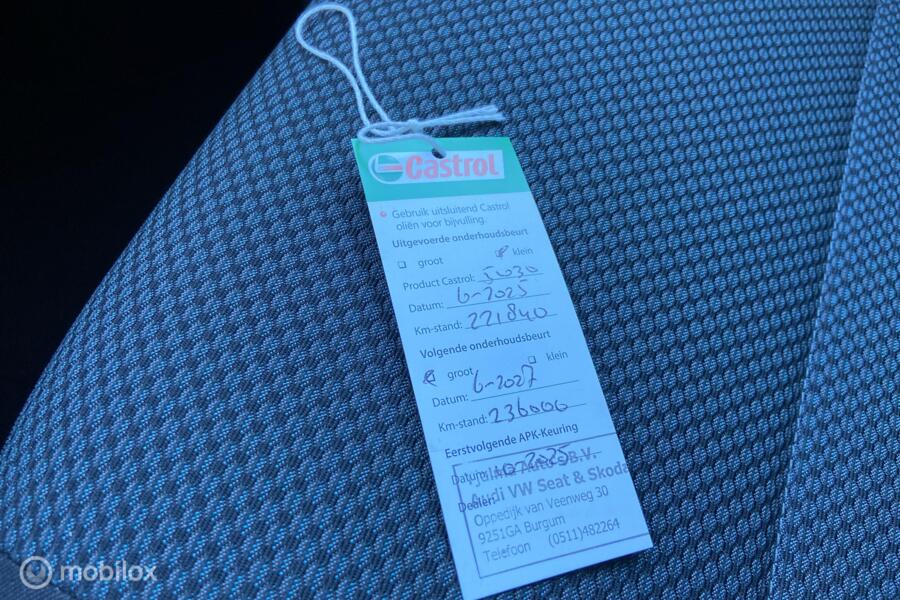 Castrol
Gebruik uitsluitend Castrol
oliën voor bijvulling.
Uitgevoerde onderhoudsbeurt
groot klein
Product Castrol: 5W30
Datum: 6-2025
Km-stand: 221840
Volgende onderhoudsbeurt
groot klein
Datum: 6-2027
Km-stand: 236000
Eerstvolgende APK-Keuring
Datum: 10-2025
Auto B.V.
Dealer:
Audi VW Seat & Skoda
Oppedijk van Veenweg 30
9251GA Burgum
Telefoon (0511)482264
mobilox